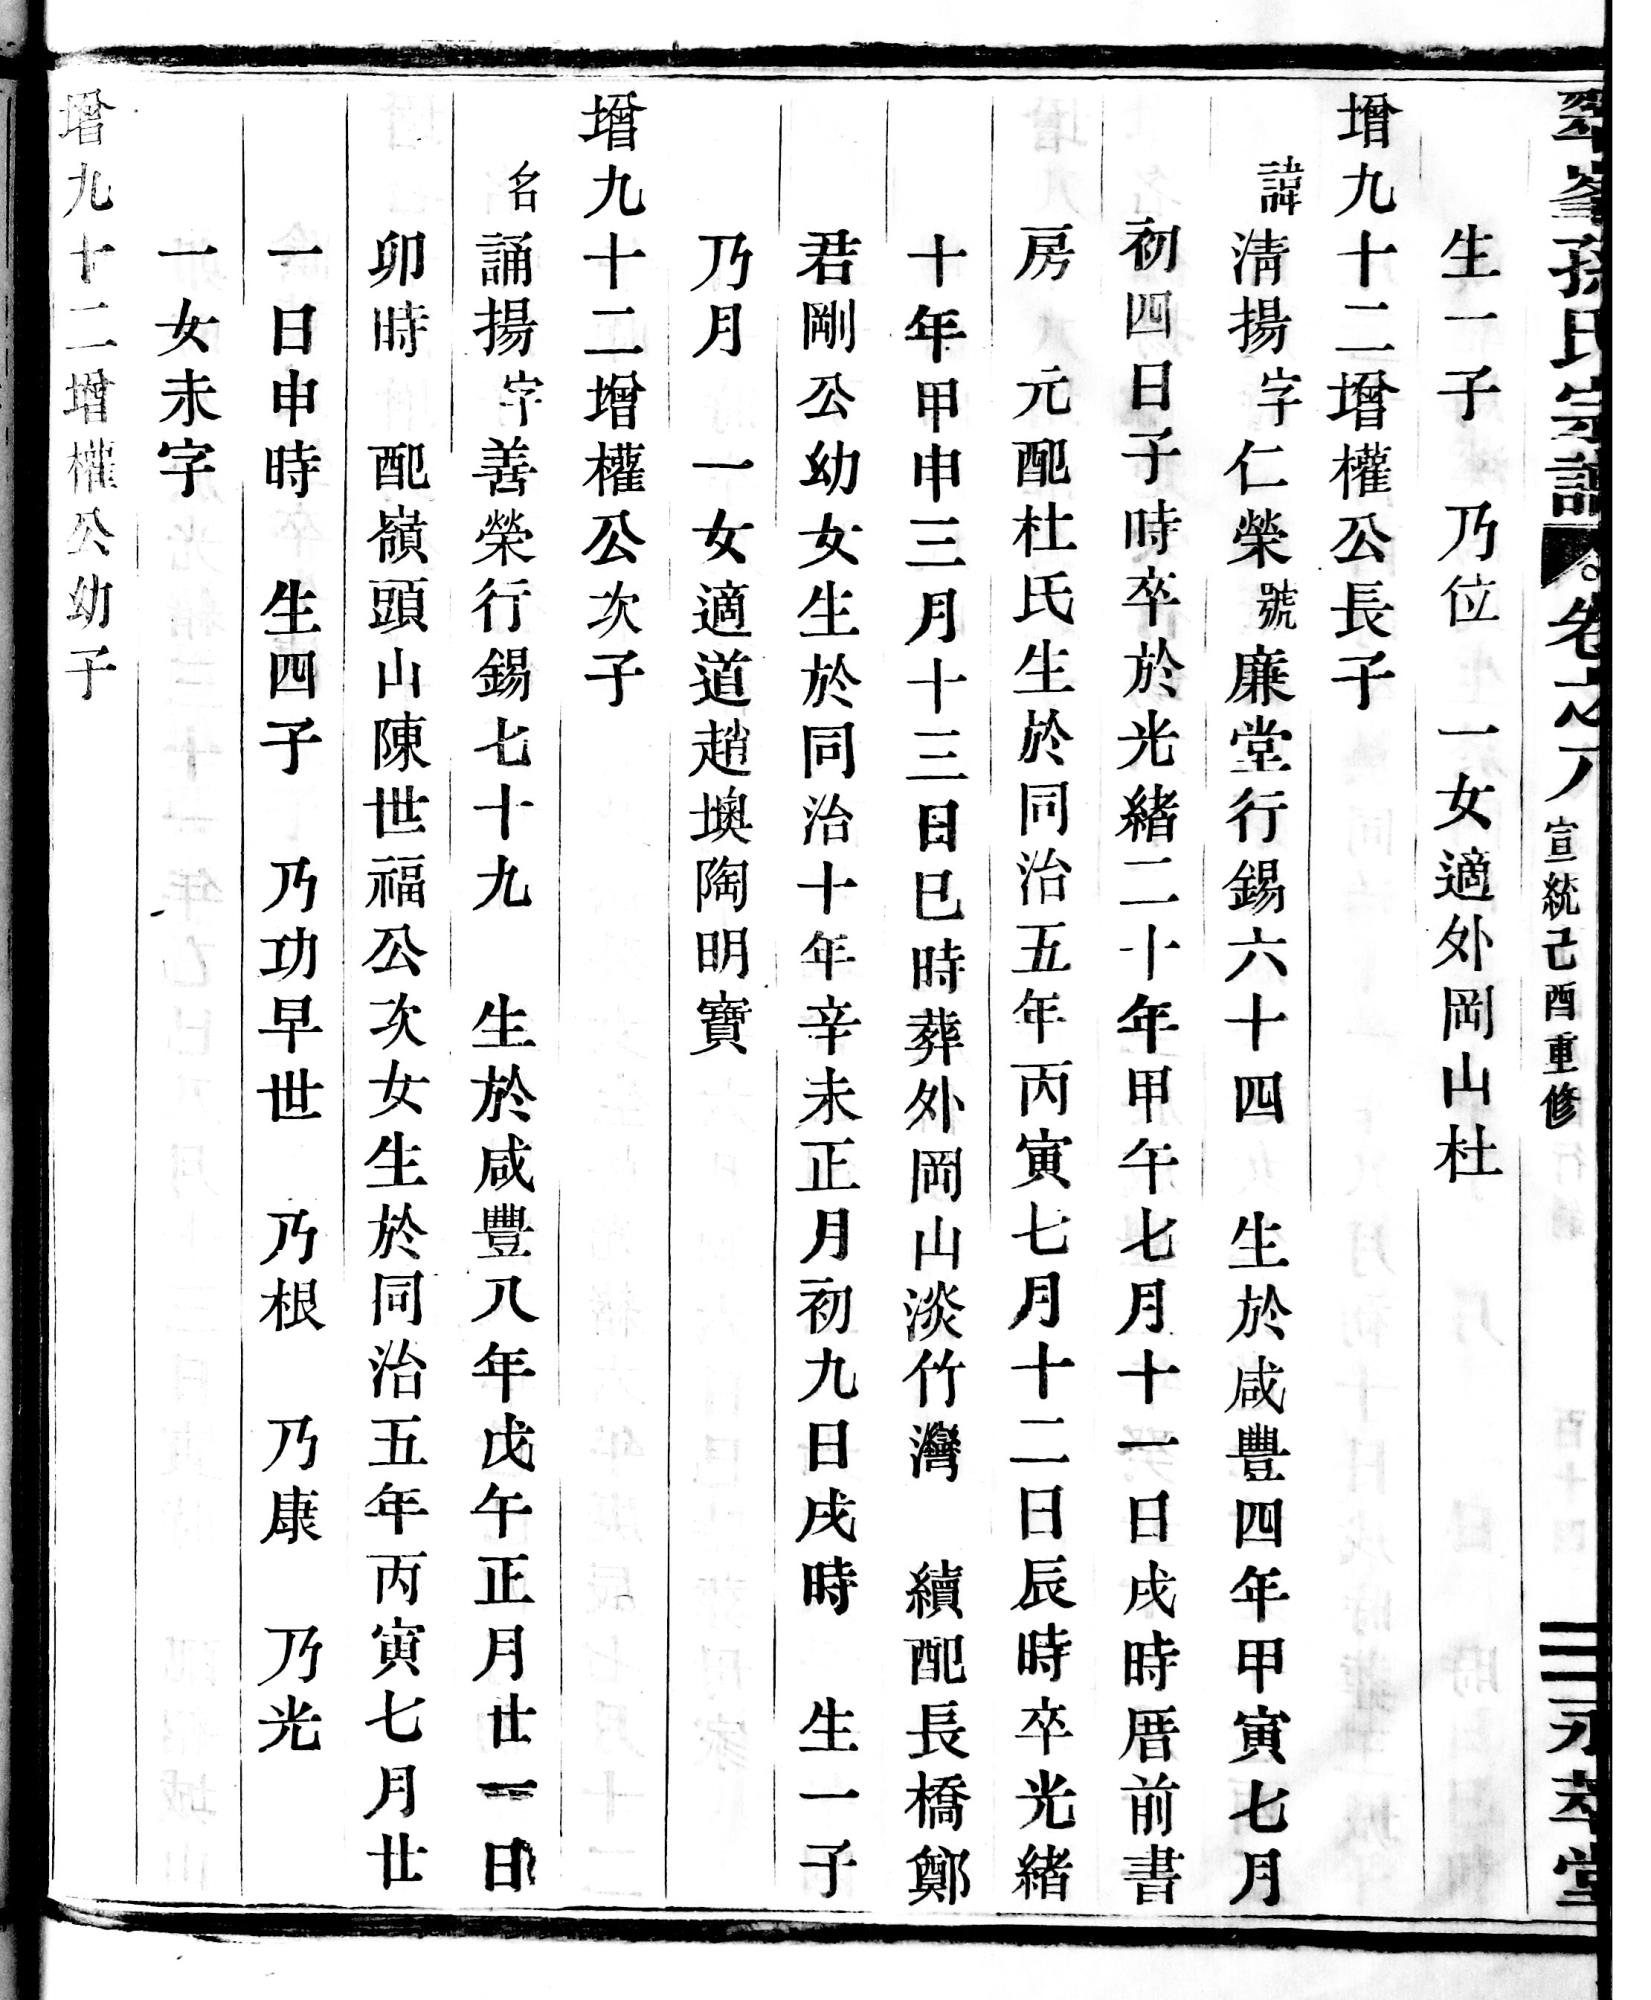 翠峯孫氏宗譜 卷之八 宣統己酉重修 永萃堂
生一子 乃位 一女適外岡山杜
增九十二增權公長子
諱清揚字仁榮號廉堂行錫六十四 生於咸豐四年甲寅七月
初四日子時卒於光緒二十年甲午七月十一日戌時厝前書
房 元配杜氏生於同治五年丙寅七月十二日辰時卒光緒
十年甲申三月十三日巳時葬外岡山淡竹灣 續配長橋鄭
君剛公幼女生於同治十年辛未正月初九日戌時 生一子
乃月 一女適道趙墺陶明寶
增九十二增權公次子
名誦揚字善榮行錫七十九 生於咸豐八年戊午正月廿一日
卯時 配嶺頭山陳世福公次女生於同治五年丙寅七月廿
一日申時 生四子 乃功早世 乃根 乃康 乃光
一女未字
增九十二增權公幼子